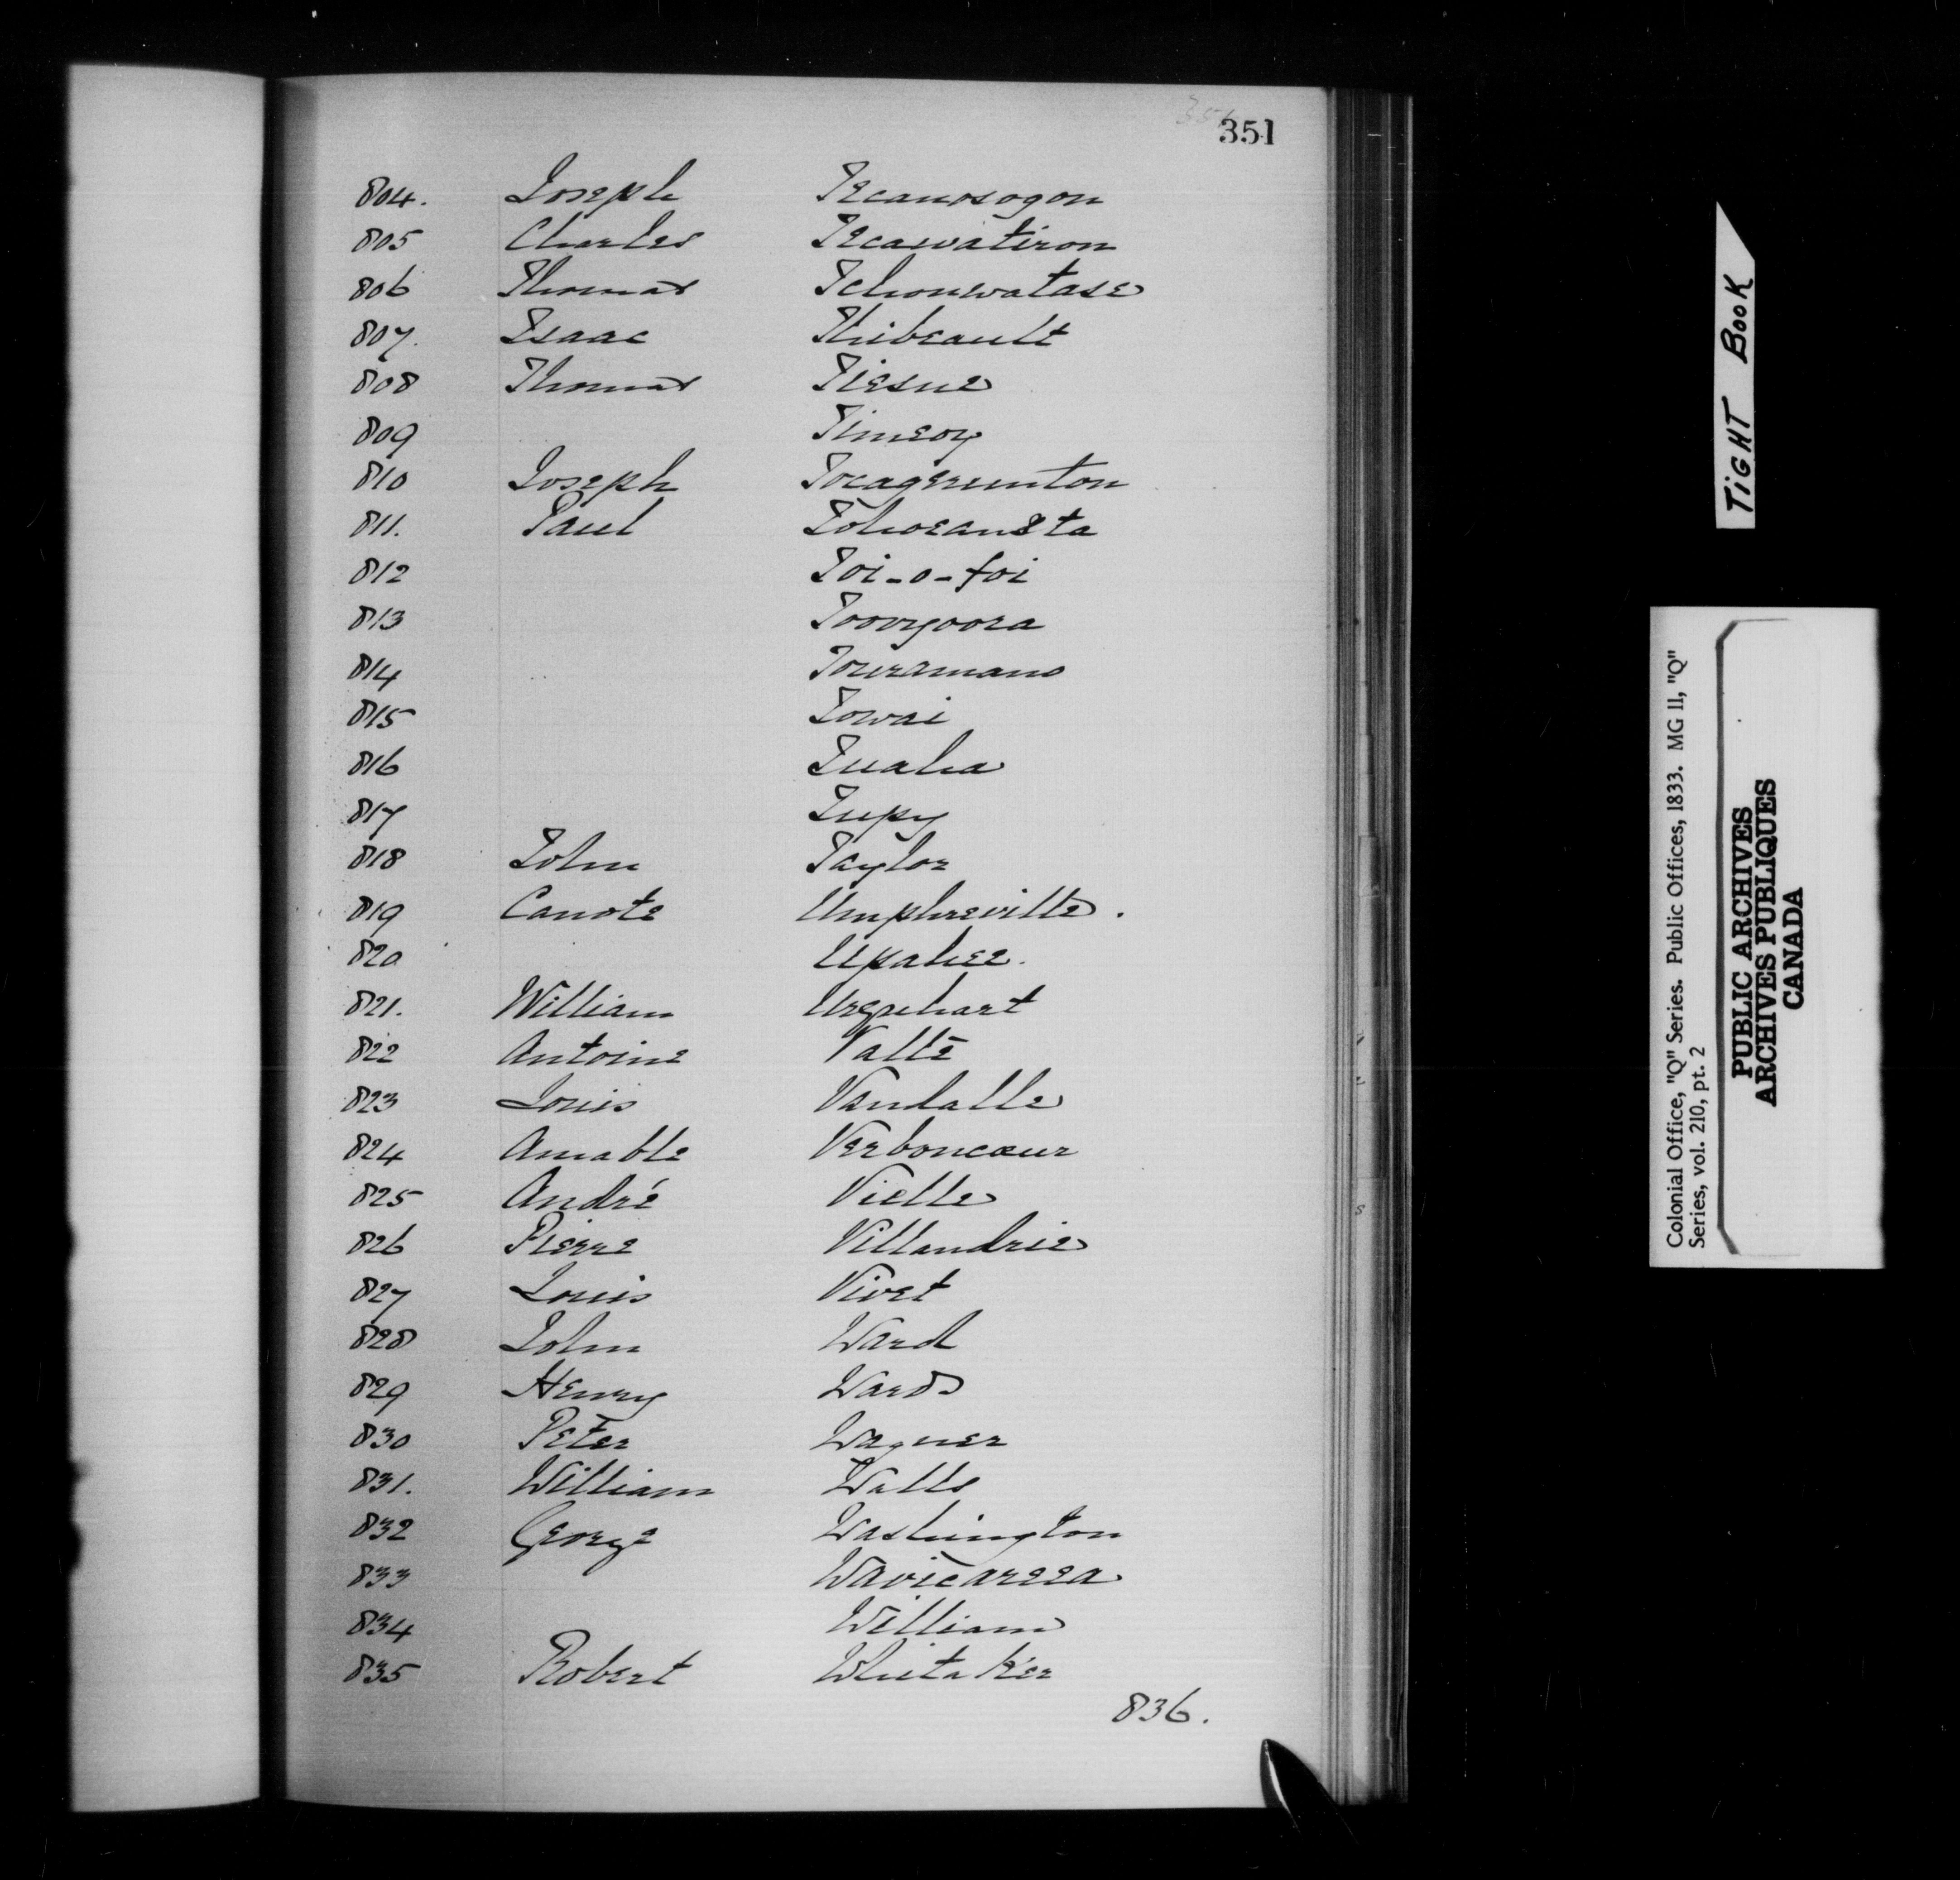 351
804. Joseph Tecanosogon
805 Charles Tecawatiron
806 Thomas Tchonwatase
807. Isaac Thibeault
808 Thomas Tiesne
809 Timeoy
810 Joseph Tocagerunton
811. Paul
812 Toi-o-foi
813
814 Touramano
815 Towai
816 Tuaha
817 Tupy
818 John Taylor
819 Canote Umphreville.
820 Upahee.
821. William Urquhart
822 Antoine Vallé
823 Louis Vandalle
824 Amable Verboncœur
825 André Vielle
826 Pierre Villandrie
827 Louis Vivet
828 John Ward
829 Henry Wards
830 Peter Wagner
831. William Walls
832 George Washington
833 Wavicareea
834 William
835 Robert Whitaker
836.
TIGHT BOOK
Colonial Office, "Q" Series. Public Offices, 1833. MG 11, "Q"
Series, vol. 210, pt. 2
PUBLIC ARCHIVES
ARCHIVES PUBLIQUES
CANADA